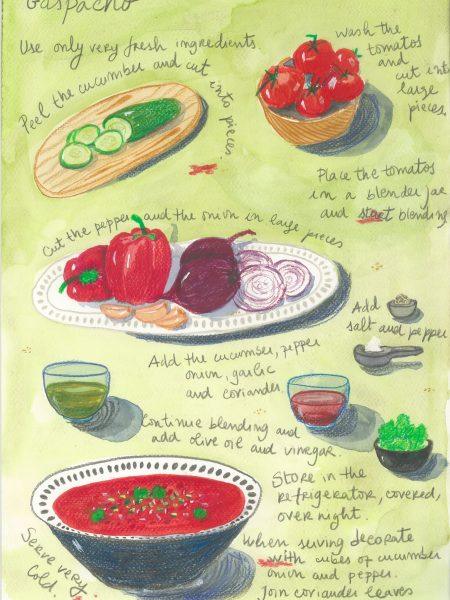 Gaspacho
Use only very fresh ingredients.
Peel the cucumber and cut into pieces.
Wash the
tomatos
and
cut into
large
pieces.
Place the tomatos
in a blender jar
and start blending
Cut the pepper and the onion in large pieces
Add
salt and pepper
Add the cucumber, pepper
onion, garlic
and coriander.
Continue blending and
add olive oil and vinegar.
Store in the
refrigerator, covered,
over night.
Serve very
cold.
When serving decorate
with cubes of cucumber
onion and pepper.
Join coriander leaves